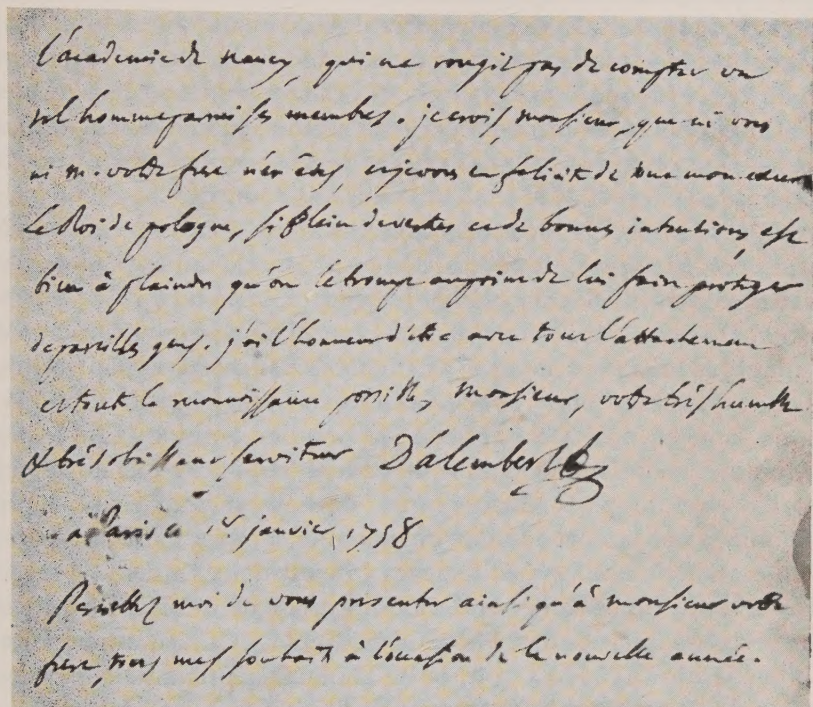 l'academie de nancy, qui ne rougit pas de compter un
tel homme parmi ses membres. je crois, monsieur, que ni vous
ni m. votre frere n'en êtes, et je vous en felicite de tout mon cœur
Le Roi de pologne, si plein de vertus et de bonnes intentions, est
bien à plaindre qu'on le trompe au point de lui faire proteger
de pareilles gens. j'ai l'honneur d'etre avec tout l'attachement
et toute la reconnoissance possible, Monsieur, votre très humble
& très obeissant serviteur D'alembert
à Paris ce 1er. janvier 1758
Permettez moi de vous presenter ainsi qu'à monsieur votre
frere, tous mes souhaits à l'occasion de la nouvelle année.